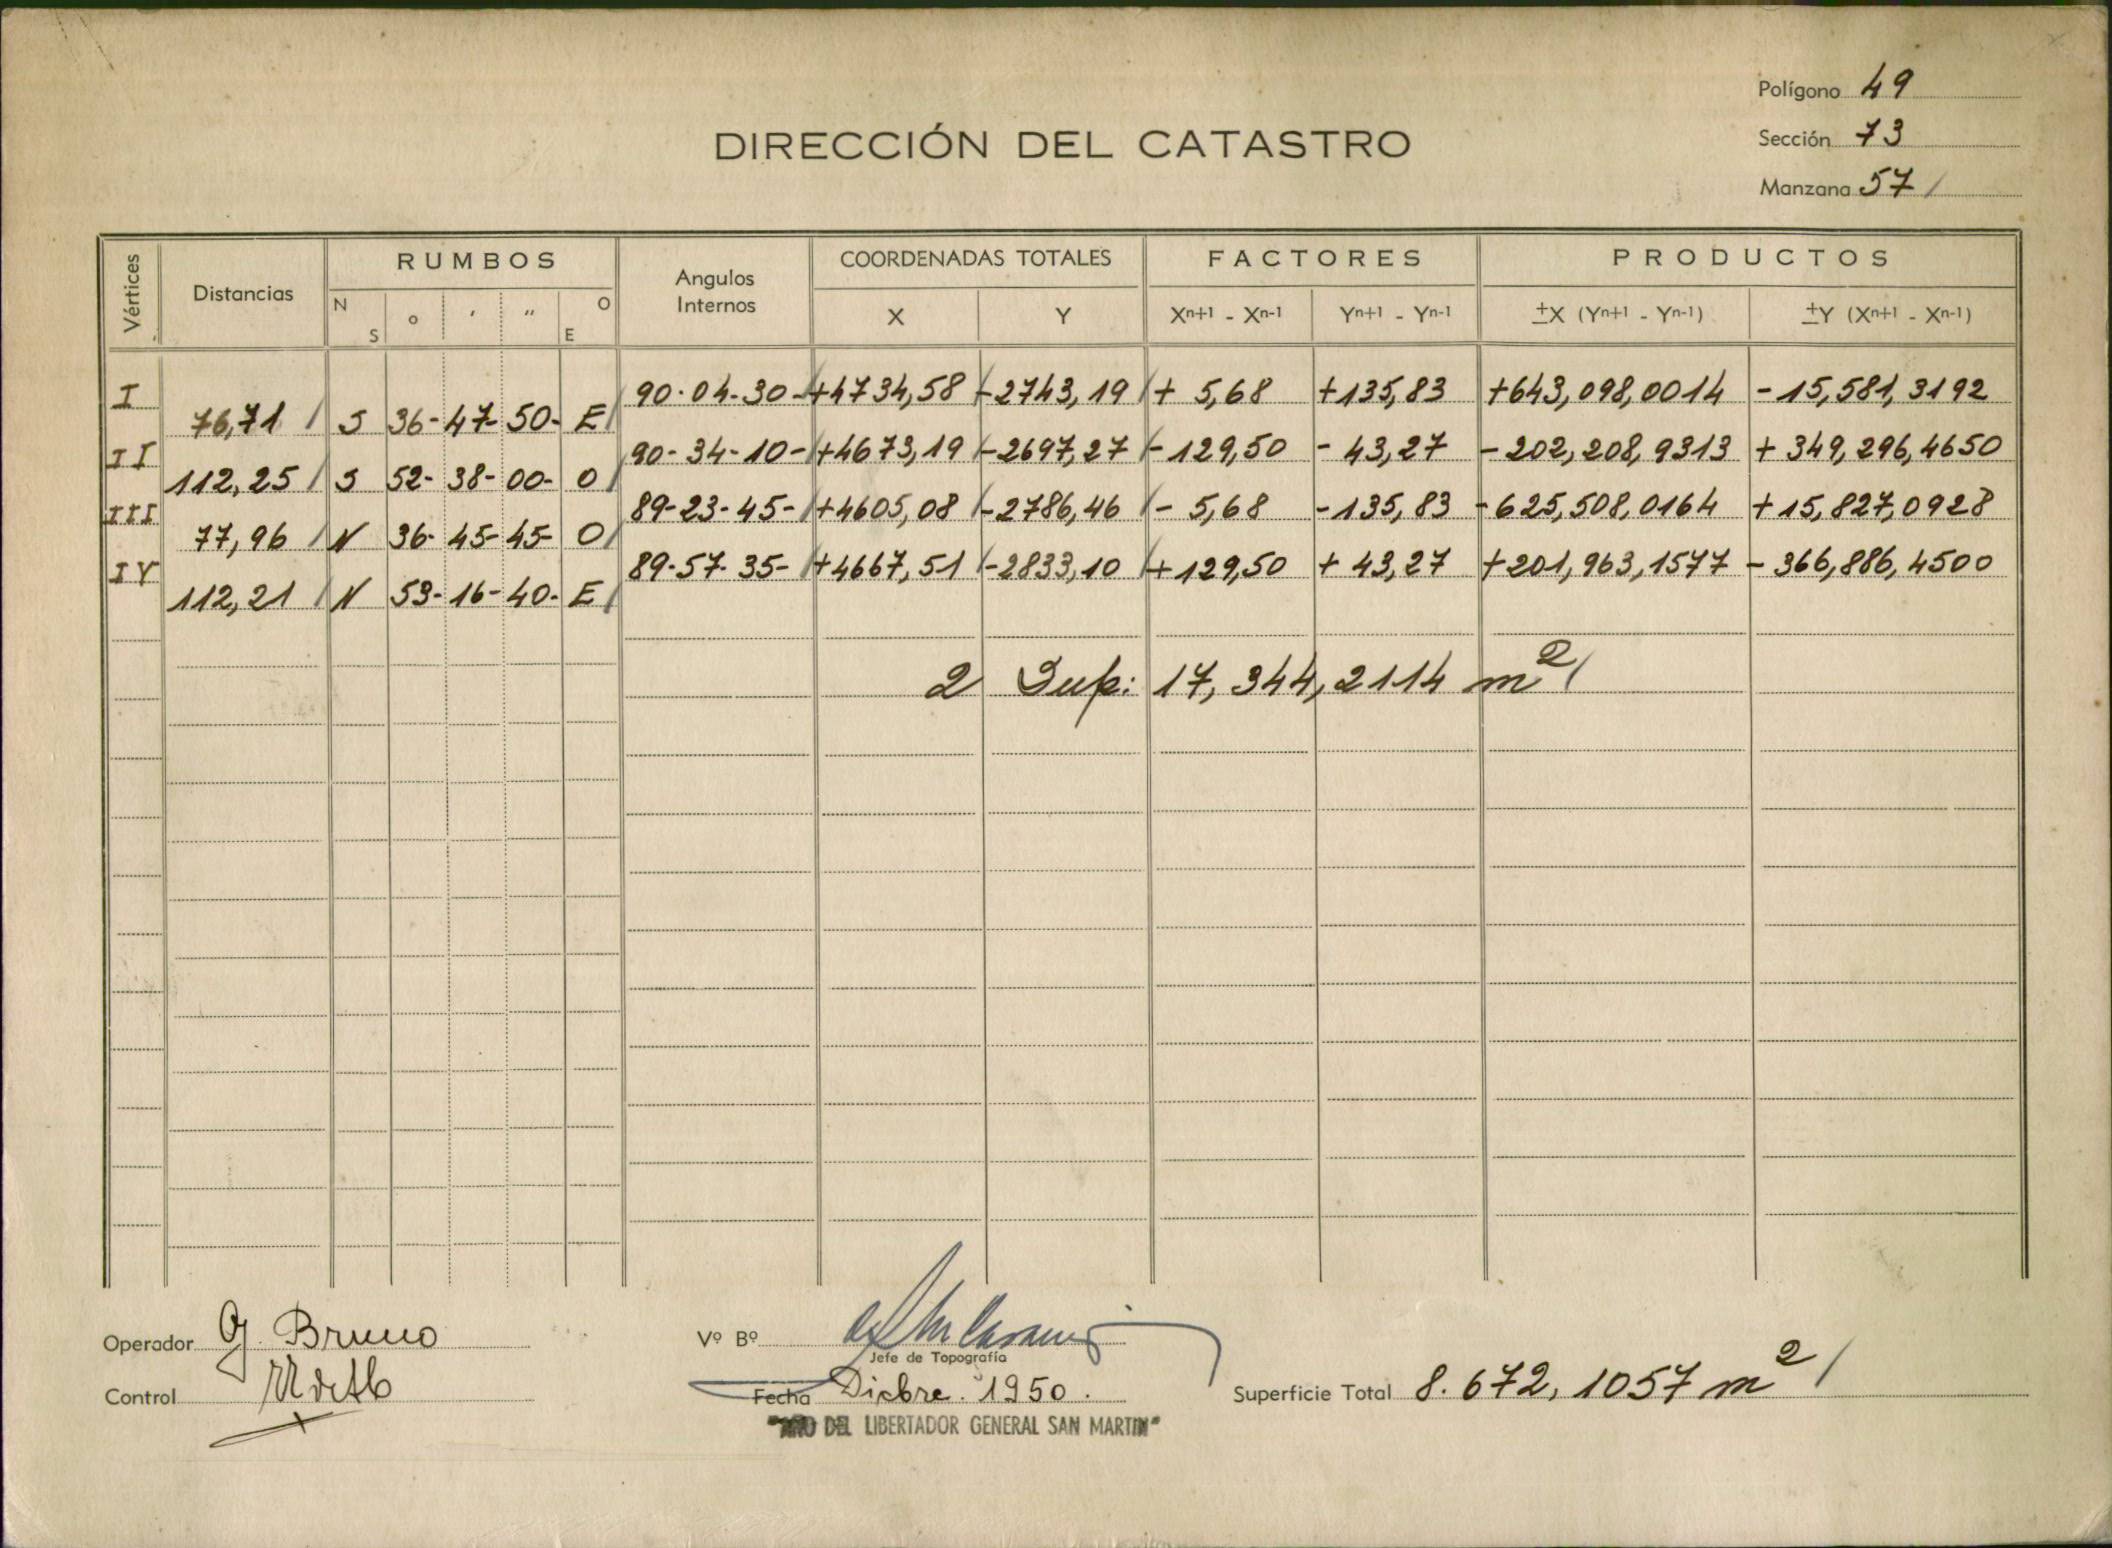 Polígono 49
DIRECCIÓN DEL CATASTRO
Sección 73
Manzana 57 /
Vértices Distancias RUMBOS Angulos Internos COORDENADAS TOTALES FACTORES PRODUCTOS
N S ° ' " O E X Y Xn+1 - Xn-1 Yn+1 - Yn-1 ±X (Yn+1 - Yn-1) ±Y (Xn+1 - Xn-1)
I 90-04-30- +4734,58 -2743,19 + 5,68 +135,83 +643,098,0014 -15,581,3192
76,71 / S 36-47-50- E/
II 90-34-10- +4673,19 -2697,27 -129,50 - 43,27 -202,208,9313 + 349,296,4650
112,25 / S 52-38-00- O/
III 89-23-45- +4605,08 -2786,46 - 5,68 -135,83 -625,508,0164 +15,827,0928
77,96 / N 36-45-45- O/
IV 89-57-35- +4667,51 -2833,10 +129,50 + 43,27 +201,963,1577 - 366,886,4500
112,21 / N 53-16-40- E/
2 Sup: 17,344,2114 m2/
Operador G. Bruno
Vº Bº
Jefe de Topografía
Control
Fecha Dicbre. 1950.
Superficie Total 8.672,1057 m2 /
"AÑO DEL LIBERTADOR GENERAL SAN MARTIN"